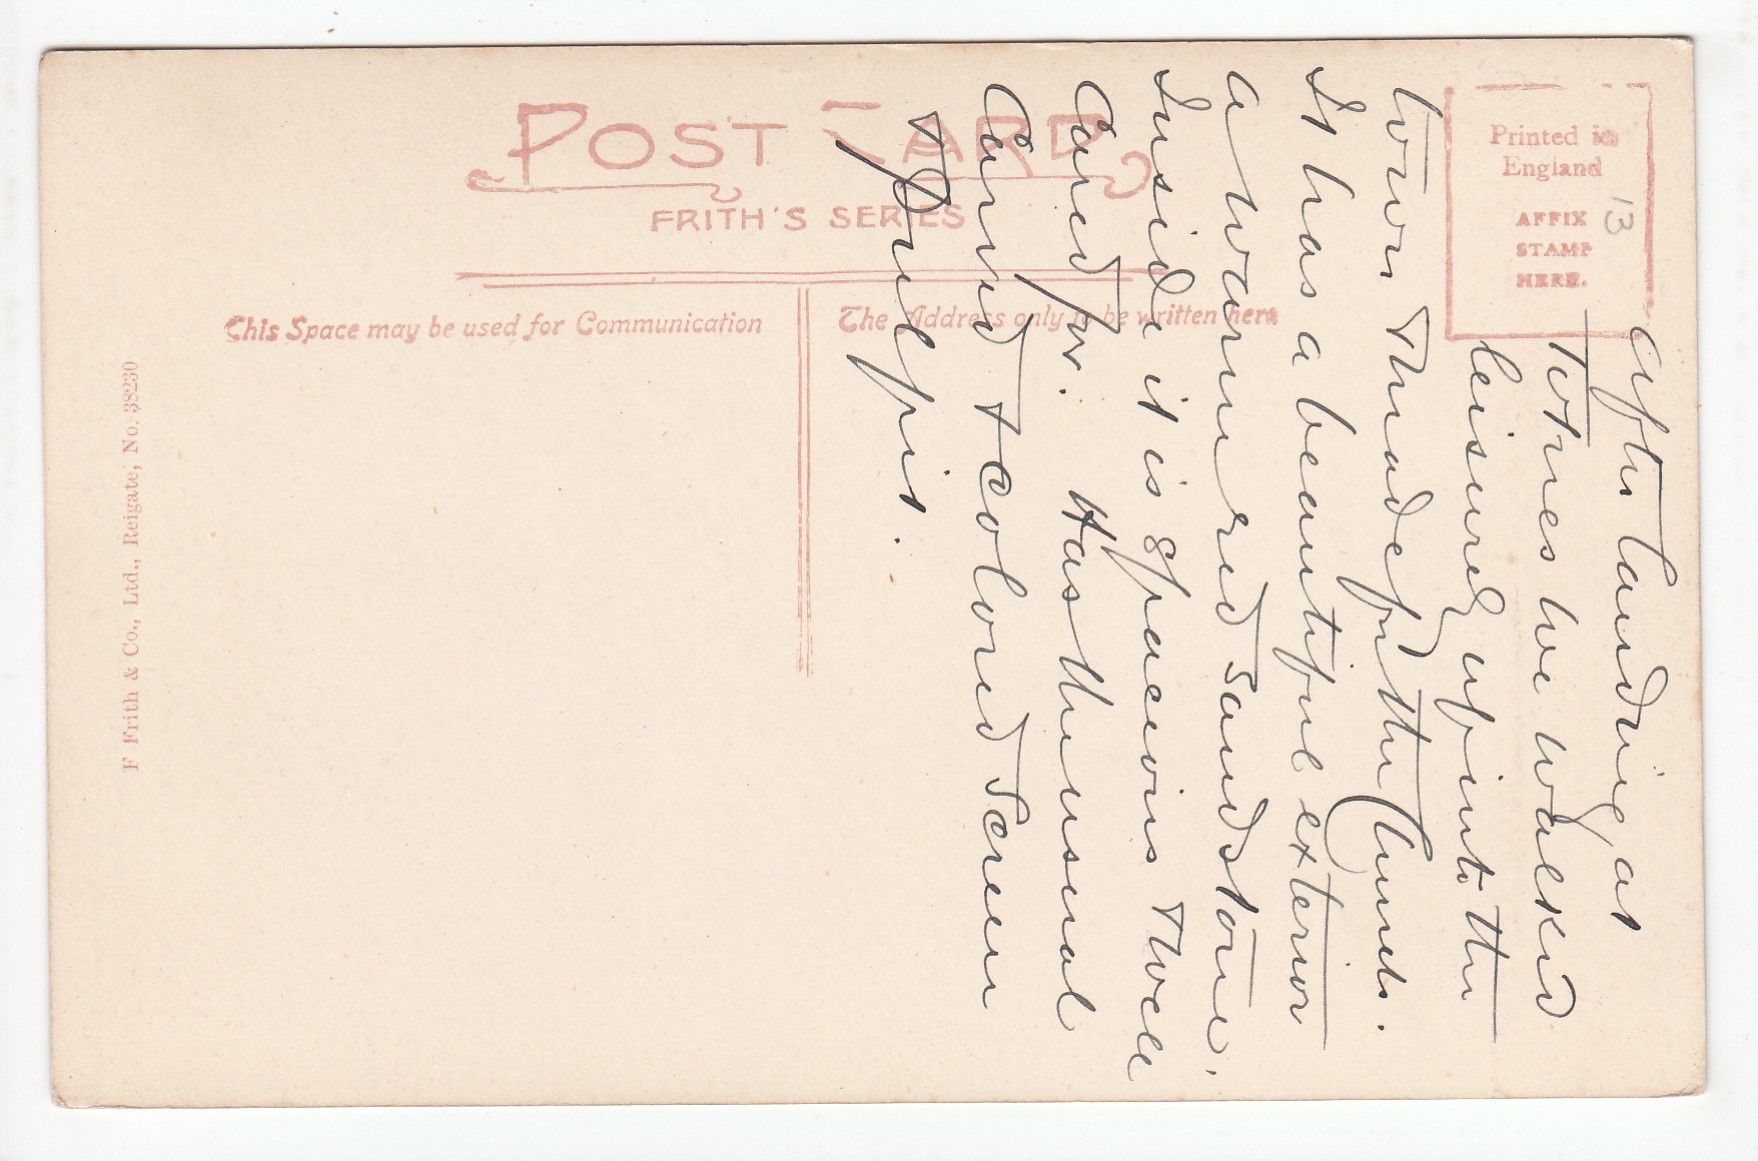 POST CARD
FRITH'S SERIES
This Space may be used for Communication
The Address only to be written here
Printed in
England
AFFIX
STAMP
HERE.
13
F Frith & Co., Ltd., Reigate, No. 38230
After landing at
Totnes we walked
leisurely up into the
town & made for the Church.
It has a beautiful exterior
a warm red sandstone,
Inside it is spacious & well
Cared for. Has the usual
Carved & colored Screen
& Pulpit.